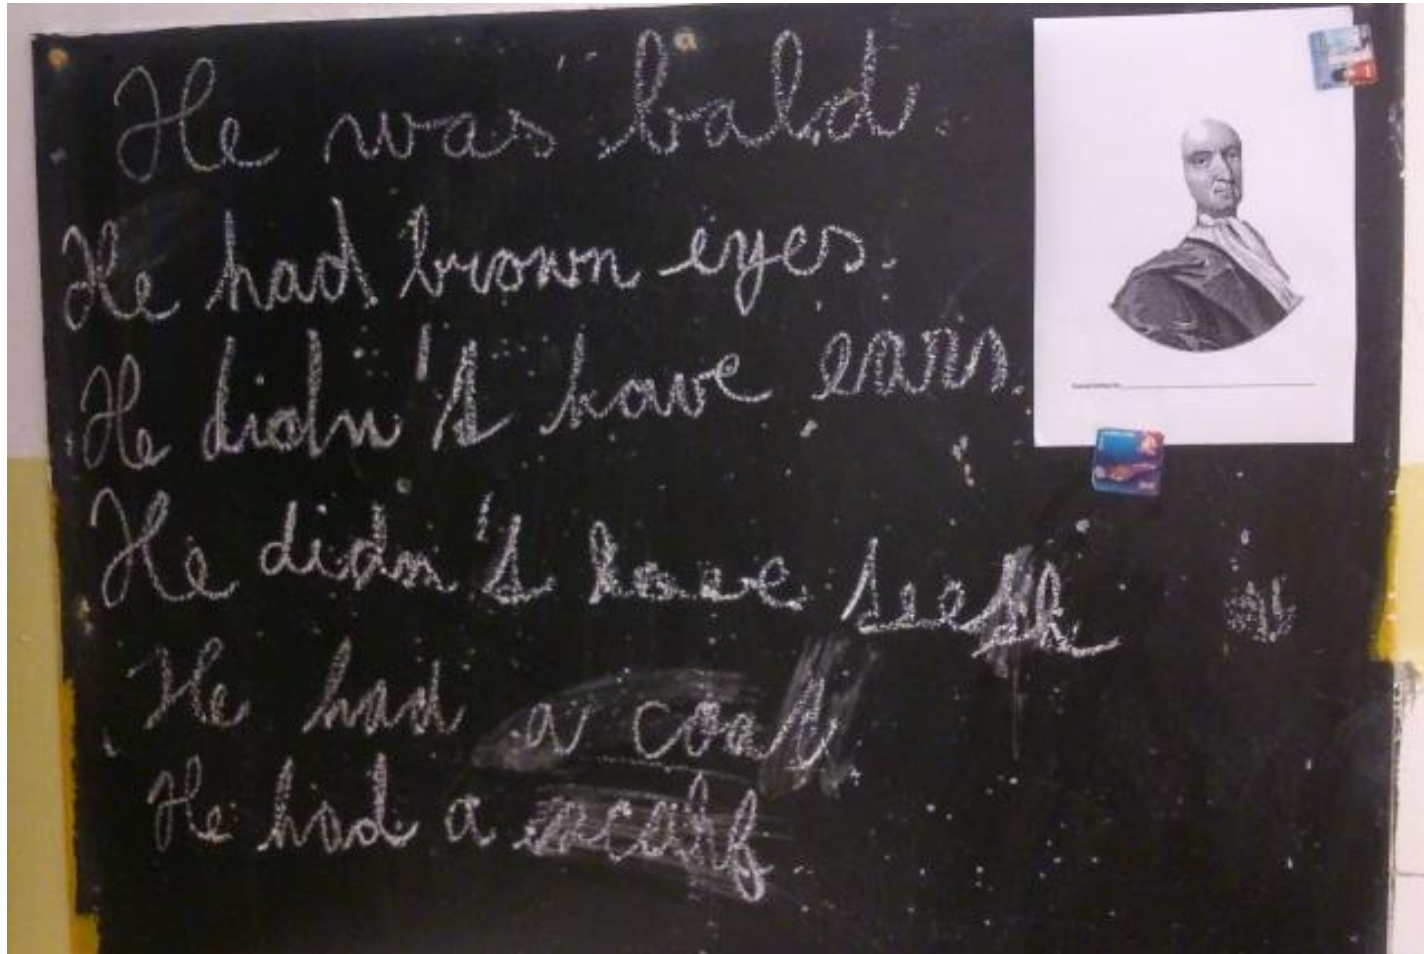 He was bald.
He had brown eyes.
He didn't have ears.
He didn't have teeth
He had a coat.
He had a scarf